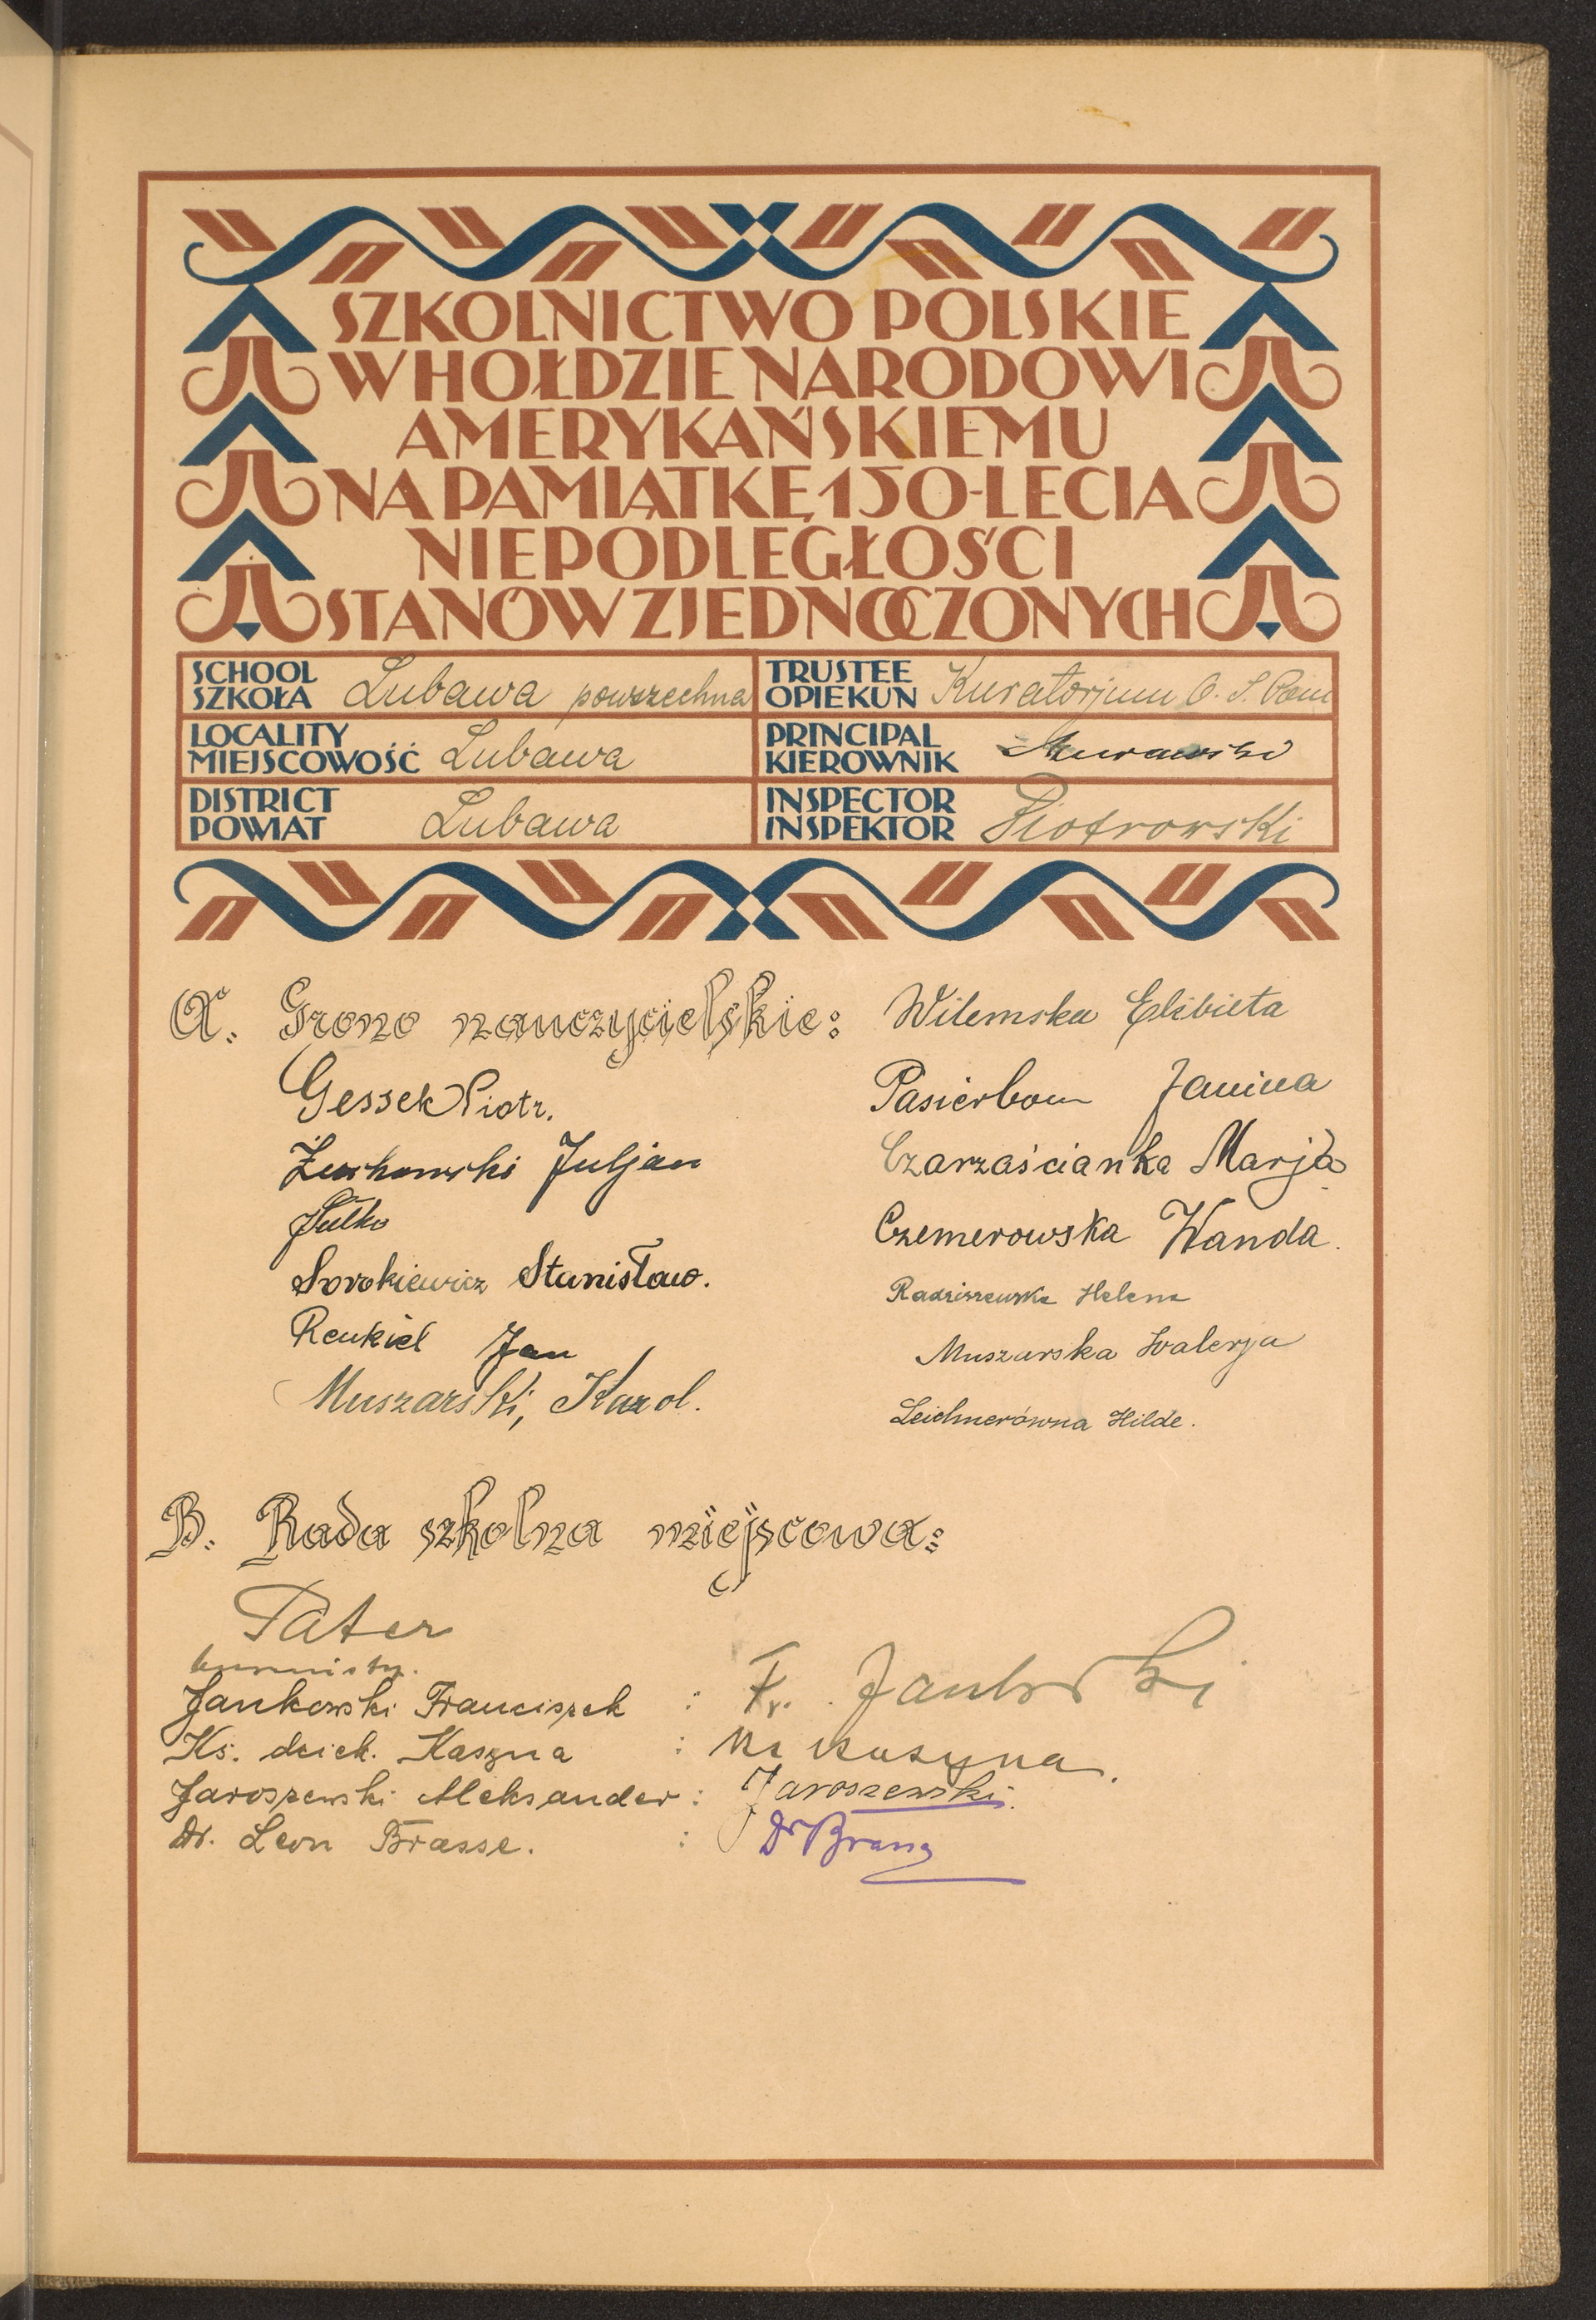 SZKOLNICTWO POLSKIE
W HOŁDZIE NARODOWI
AMERYKAŃSKIEMU
NA PAMIĄTKĘ 150-LECIA
NIEPODLEGŁOŚCI
STANÓW ZJEDNOCZONYCH
SCHOOL
SZKOŁA Lubawa powszechna
TRUSTEE
OPIEKUN Kuratorjum O. S. Pom
LOCALITY
MIEJSCOWOŚĆ Lubawa
PRINCIPAL
KIEROWNIK Murawski
DISTRICT
POWIAT Lubawa
INSPECTOR
INSPEKTOR Piotrowski
A. Grono nauczycielskie:
Gessek Piotr.
Żuchowski Juljan
Sorokiewicz Stanisław.
Renkiel Jan
Muszarski, Karol.
Wilemska Elżbieta
Janina
Czarzaścianka Marja
Czemerowska Wanda.
Radziszewska Helena
Muszarska Walerja
Leichnerówna Hilde.
B. Rada szkolna miejscowa:
Pater
burmistrz.
Jankowski Franciszek : Fr. Jankowski
Ks. dziek. Kaszna :
Jaroszewski Aleksander : Jaroszewski.
Dr. Leon Brasse. : Dr Brasse